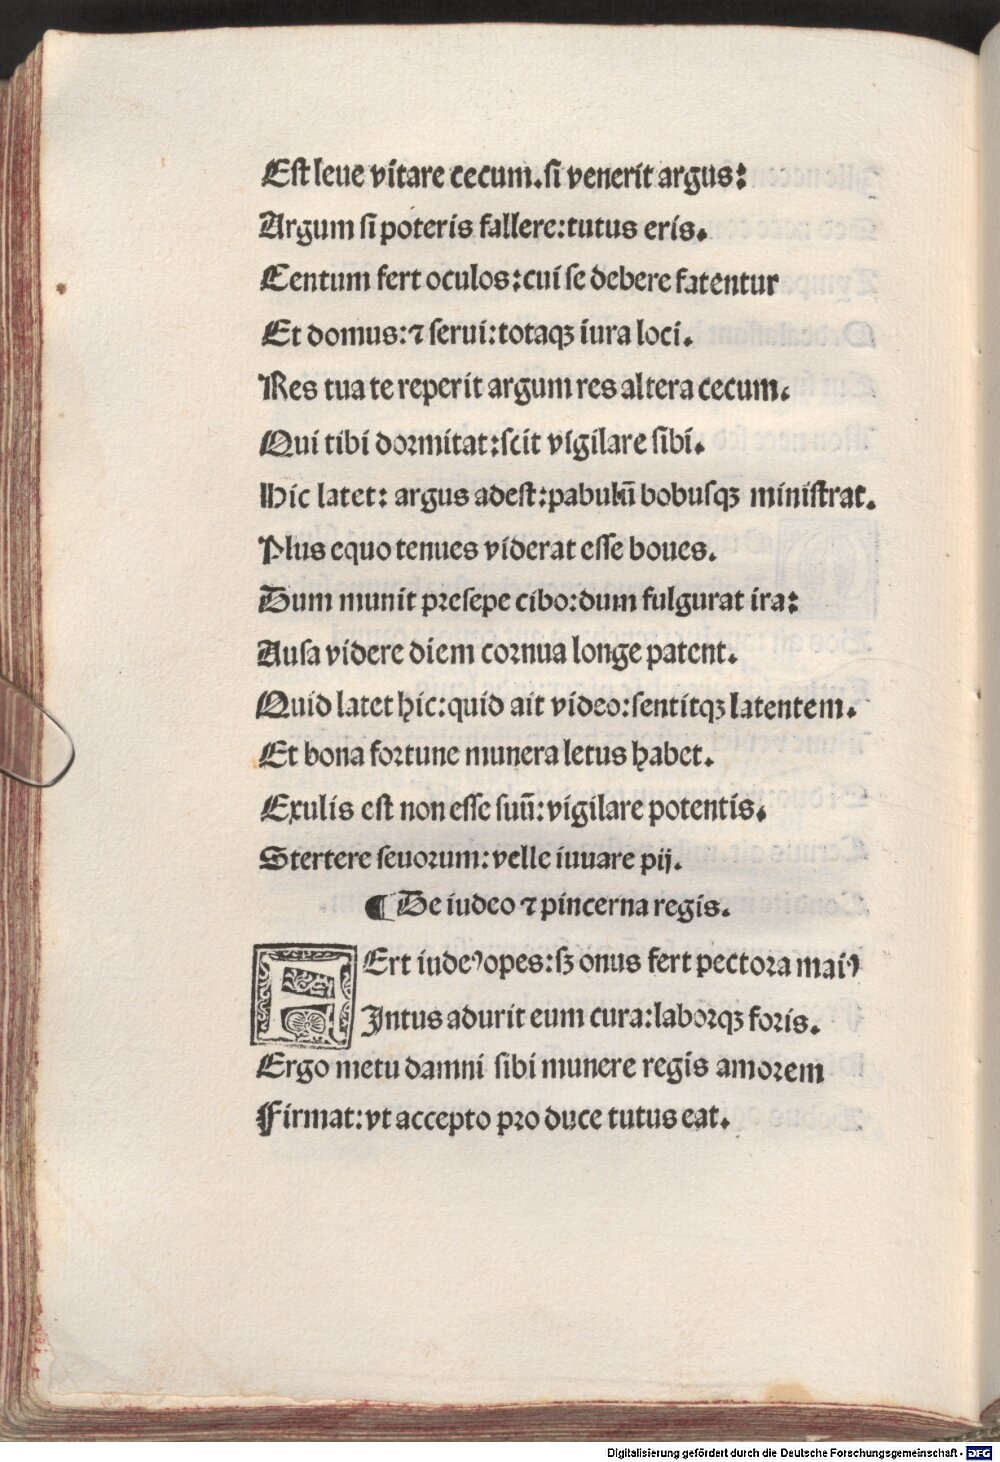 Est leue vitare cecum. si venerit argus:
Argum si poteris fallere: tutus eris.
Centum fert oculos: cui se debere fatentur
Et domus: ⁊ serui: totaqꝫ iura loci.
Res tua te reperit argum res altera cecum.
Qui tibi dormitat: scit vigilare sibi.
Hic latet: argus adest: pabulū bobusqꝫ ministrat.
Plus equo tenues viderat esse boues.
Dum munit presepe cibo: dum fulgurat ira:
Ausa videre diem cornua longe patent.
Quid latet hic: quid ait video: sentitqꝫ latentem.
Et bona fortune munera letus habet.
Exulis est non esse suū: vigilare potentis.
Stertere seuorum: velle iuuare pij.
¶ De iudeo ⁊ pincerna regis.
FErt iudeꝰ opes: sꝫ onus fert pectora maiꝰ
Intus adurit eum cura: laborqꝫ foris.
Ergo metu damni sibi munere regis amorem
Firmat: vt accepto pro duce tutus eat.
Digitalisierung gefördert durch die Deutsche Forschungsgemeinschaft - DFG